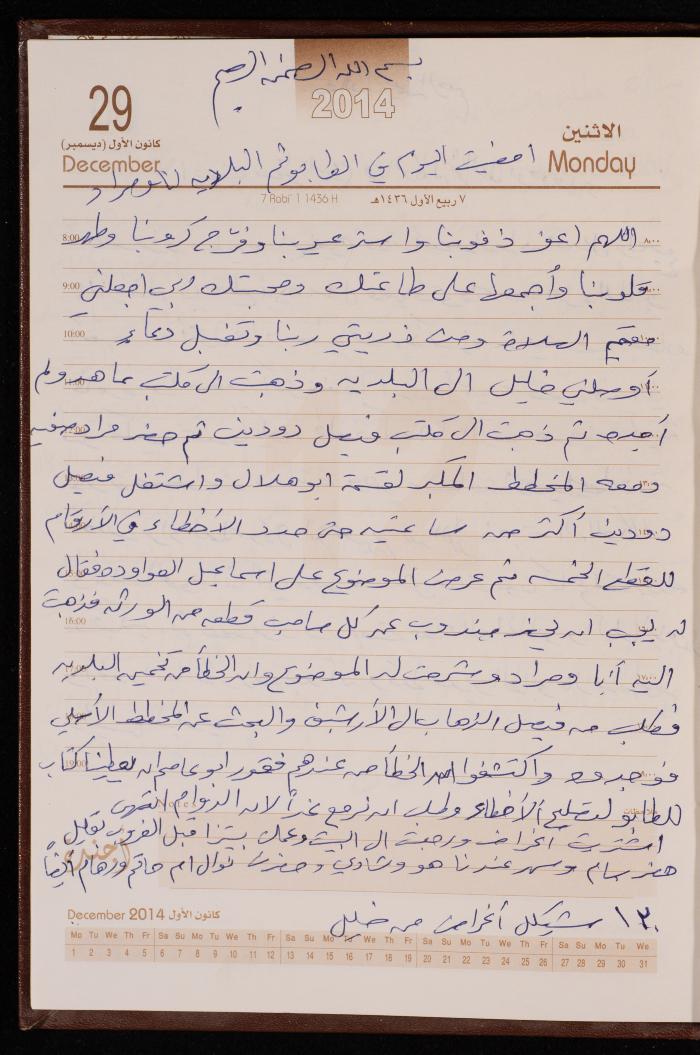 بسم الله الرحمن الرحيم
2014
29
كانون الأول (ديسمبر)
December
الاثنين
Monday
امضيت اليوم في الطابو ثم البلدية أنا ومراد
7 Rabi' I 1436 H
٧ ربيع الأول ١٤٣٦هـ
اللهم اغفر ذنوبنا واستر عيوبنا وفرّج كروبنا وطهر
قلوبنا وأجمعها على طاعتك ومحبتك ربي اجعلني
مقيم الصلاة ومن ذريتي ربنا وتقبل دعاء
أوصلني خليل الى البلدية وذهبت الى مكتب ماهر ولم
أجده ثم ذهبت الى مكتب فيصل دودين ثم حضر مراد
ومعه المخطط المكبر لقسمة ابو هلال واشتغل فيصل
دودين أكثر من ساعتين حتى حدد الأخطاء في الأرقام
للقطع الخمسة ثم عرض الموضوع على اسماعيل العواوده فقال
له يجب ان يحضر مندوب عن كل صاحب قطعه من الورثه فذهبت
اليه أنا ومراد وشرحت له الموضوع وان الخطأ من البلدية
فطلب من فيصل الذهاب الى الأرشيف والبحث عن المخطط الأصلي
فوجدوه واكتشفوا الخطأ من عندهم فقرر ابو عاصم ان يعطينا كتاب
للطابو لتصليح الأخطاء وطلب ان نرجع غداً لان الدوام انتهى
اشتريت أغراض ورجعت الى البيت وعملت بيتزا قبل الغروب بقليل
حضر سام وسهر عندنا هو وشادي وحضرت نوال ام حاتم ورهام أيضاً
١٢٠ شيكل أغراض من خليل
8:00
9:00
10:00
16:00
19:00
Notes
ملاحظات
December 2014 كانون الأول
Mo Tu We Th Fr Sa Su Mo Tu We Th Fr Sa Su Mo Tu We Th Fr Sa Su Mo Tu We Th Fr Sa Su Mo Tu We
1 2 3 4 5 6 7 8 9 10 11 12 13 14 15 16 17 18 19 20 21 22 23 24 25 26 27 28 29 30 31